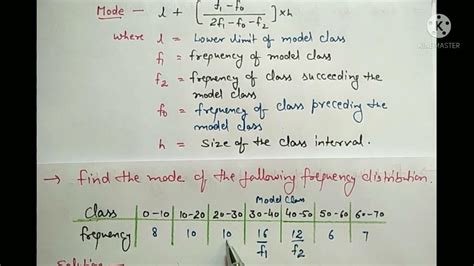 Mode - l + [ (f₁-f₀) / (2f₁-f₀-f₂) ] × h
where l = Lower limit of model class
f₁ = frequency of model class
f₂ = frequency of class succeeding the
model class
f₀ = frequency of class preceding the
model class
h = size of the class interval.
→ find the mode of the following frequency distribution.
Model Class
Class 0-10 10-20 20-30 30-40 40-50 50-60 60-70
frequency 8 10 10 16 12 6 7
f₁ f₂
KINEMASTER